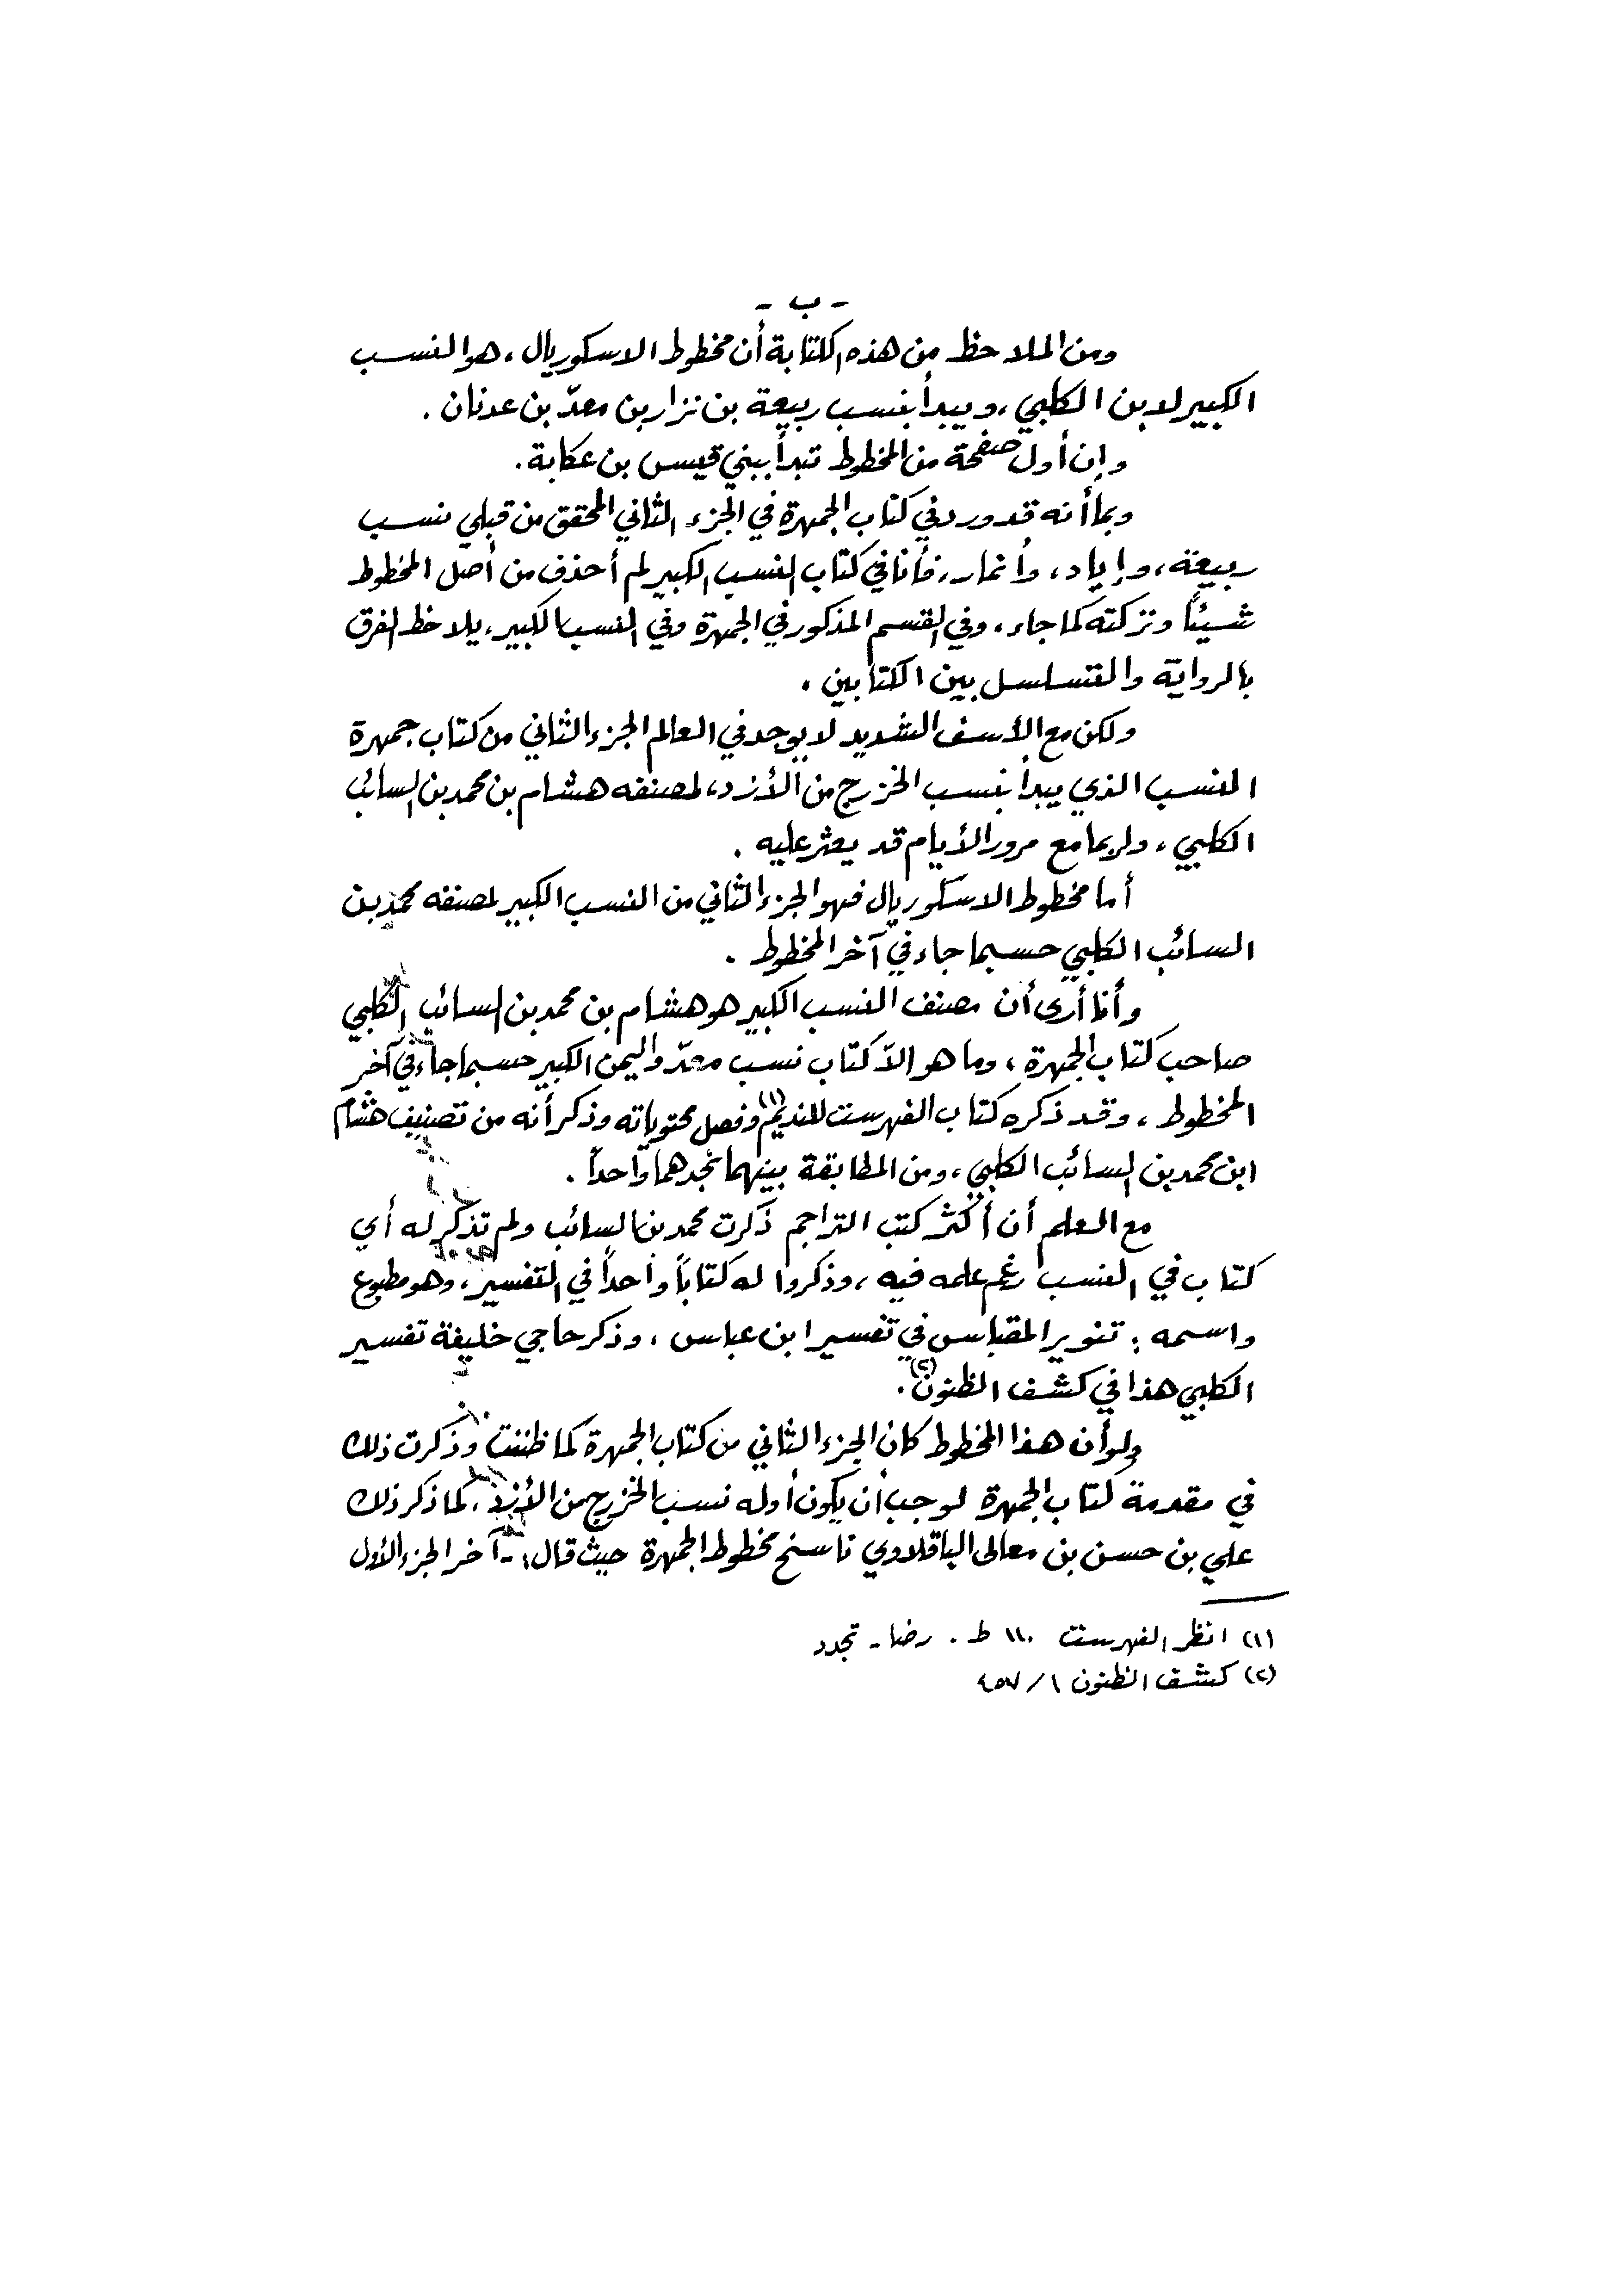 - ب -
ومن الملاحظ من هذه الكتابة أن مخطوط الاسكوريال ، هو النسب
الكبير لابن الكلبي ، ويبدأ بنسب ربيعة بن نزار بن معدّ بن عدنان .
وإن أول صفحة من المخطوط تبدأ ببني قيس بن عكابة .
وبما أنه قد ورد في كتاب الجمهرة في الجزء الثاني المحقق من قبلي نسب
ربيعة ، وإياد ، وأنمار ، فأنا في كتاب النسب الكبير لم أحذف من أصل المخطوط
شيئاً وتركته كما جاء ، وفي القسم المذكور في الجمهرة وفي النسب الكبير ، يلاحظ الفرق
بالرواية والتسلسل بين الكتابين .
ولكن مع الأسف الشديد لا يوجد في العالم الجزء الثاني من كتاب جمهرة
النسب الذي يبدأ بنسب الخزرج من الأزد ، لمصنفه هشام بن محمد بن السائب
الكلبي ، ولربما مع مرور الأيام قد يعثر عليه .
أما مخطوط الاسكوريال فهو الجزء الثاني من النسب الكبير لمصنفه محمد بن
السائب الكلبي حسبما جاء في آخر المخطوط .
وأنا أرى أن مصنف النسب الكبير هو هشام بن محمد بن السائب الكلبي
صاحب كتاب الجمهرة ، وما هو الاّ كتاب نسب معدّ واليمن الكبير حسبما جاء في آخر
المخطوط ، وقد ذكره كتاب الفهرست للنديم (١) وفصل محتوياته وذكر أنه من تصنيف هشام
ابن محمد بن السائب الكلبي ، ومن المطابقة بينهما نجدهما واحداً .
مع العلم أن أكثر كتب التراجم ذكرت محمد بن السائب ولم تذكر له أي
كتاب في النسب رغم علمه فيه ، وذكروا له كتاباً واحداً في التفسير ، وهو مطبوع
واسمه : تنوير المقباس في تفسير ابن عباس ، وذكر حاجي خليفة تفسير
الكلبي هذا في كشف الظنون (٢) .
ولو أن هذا المخطوط كان الجزء الثاني من كتاب الجمهرة كما ظننت وذكرت ذلك
في مقدمة كتاب الجمهرة لوجب أن يكون أوله نسب الخزرج من الأزد ، كما ذكر ذلك
علي بن حسن بن معالى الباقلاوي ناسخ مخطوط الجمهرة حيث قال :- آخر الجزء الأول
(١) انظر الفهرست ١١٠ ط . رضا - تجدد
(٢) كشف الظنون ١/ ٤٥٧